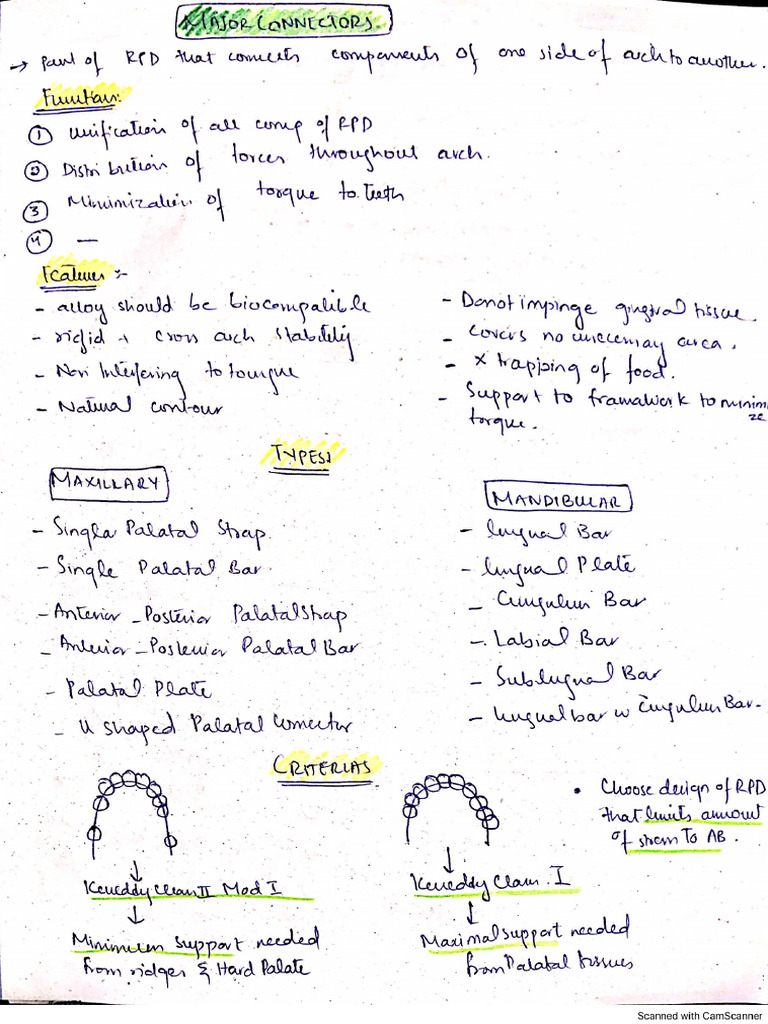 MAJOR CONNECTORS.
→ Part of RPD that connects components of one side of arch to another.
Function:
① Unification of all comp of RPD
② Distribution of forces throughout arch.
③ Minimization of torque to teeth
④ —
Features :-
- alloy should be biocompatible
- rigid + cross arch stability
- Non Interfering to tongue
- Natural contour
- Donot impinge gingival tissue.
- covers no unnecessary area.
- x trapping of food.
- Support to framework to minimize
torque.
TYPES:
MAXILLARY
- Single Palatal Strap.
- Single Palatal Bar.
- Anterior - Posterior Palatal Strap
- Anterior - Posterior Palatal Bar
- Palatal Plate
- U shaped Palatal Connector
MANDIBULAR
- lingual Bar
- lingual Plate
- Cingulum Bar
- Labial Bar
- Sublingual Bar
- lingual bar w Cingulum Bar.
CRITERIAS
↓
Kennedy Class II Mod I
↓
Minimum support needed
from ridges & Hard Palate
↓
Kennedy Class. I
↓
Maximal support needed
from Palatal tissues
• Choose design of RPD
that limits amount
of stress To AB.
Scanned with CamScanner